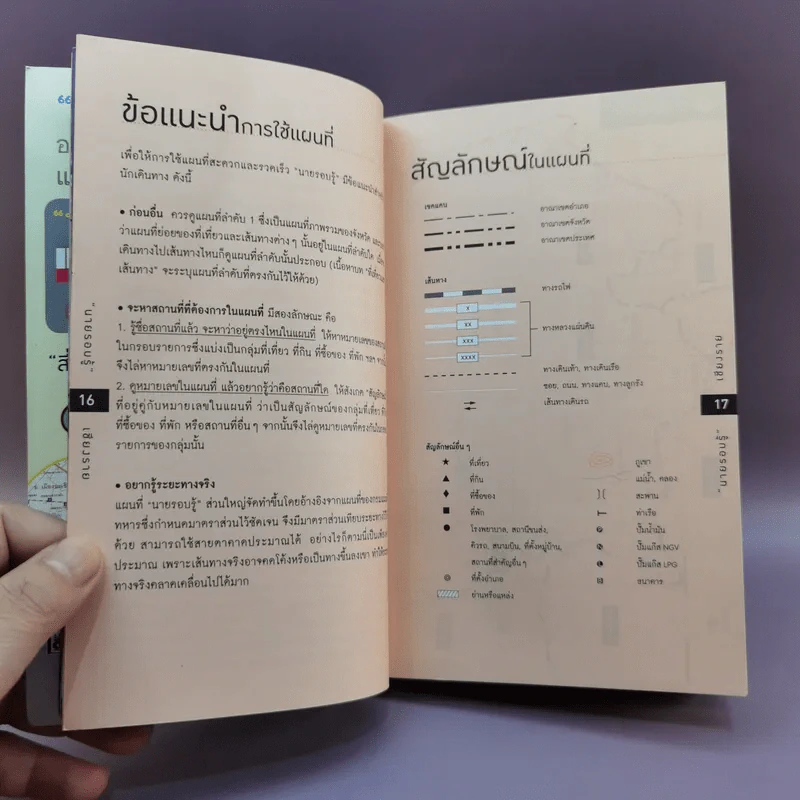 ข้อแนะนำการใช้แผนที่
เพื่อให้การใช้แผนที่สะดวกและรวดเร็ว "นายรอบรู้" มีข้อแนะนำสำหรับ
นักเดินทาง ดังนี้
• ก่อนอื่น ควรดูแผนที่ลำดับ 1 ซึ่งเป็นแผนที่ภาพรวมของจังหวัด
ว่าแผนที่ย่อยของที่เที่ยวและเส้นทางต่าง ๆ นั้นอยู่ในแผนที่ลำดับใด
เดินทางไปเส้นทางไหนก็ดูแผนที่ลำดับนั้นประกอบ (เนื้อหาบท
เส้นทาง" จะระบุแผนที่ลำดับที่ตรงกันไว้ให้ด้วย)
• จะหาสถานที่ที่ต้องการในแผนที่ มีสองลักษณะ คือ
1. รู้ชื่อสถานที่แล้ว จะหาว่าอยู่ตรงไหนในแผนที่ ให้หาหมายเลขของสถานที่
ในกรอบรายการซึ่งแบ่งเป็นกลุ่มที่เที่ยว ที่กิน ที่ซื้อของ ที่พัก ฯลฯ
จึงไล่หาหมายเลขที่ตรงกันในแผนที่
2. ดูหมายเลขในแผนที่ แล้วอยากรู้ว่าคือสถานที่ใด ให้สังเกต "สัญลักษณ์"
ที่อยู่คู่กับหมายเลขในแผนที่ ว่าเป็นสัญลักษณ์ของกลุ่มที่เที่ยว
ที่ซื้อของ ที่พัก หรือสถานที่อื่น ๆ จากนั้นจึงไล่ดูหมายเลขที่ตรงกันใน
รายการของกลุ่มนั้น
• อยากรู้ระยะทางจริง
แผนที่ "นายรอบรู้" ส่วนใหญ่จัดทำขึ้นโดยอ้างอิงจากแผนที่ของกรมแผนที่
ทหารซึ่งกำหนดมาตราส่วนไว้ชัดเจน จึงมีมาตราส่วนเทียบระยะทางไว้
ด้วย สามารถใช้สายตาคาดประมาณได้ อย่างไรก็ตามนี่เป็นเพียง
ประมาณ เพราะเส้นทางจริงอาจคดโค้งหรือเป็นทางขึ้นลงเขา
ทางจริงคลาดเคลื่อนไปได้มาก
"นายรอบรู้"
16
เชียงราย
สัญลักษณ์ในแผนที่
เขตแดน
อาณาเขตอำเภอ
อาณาเขตจังหวัด
อาณาเขตประเทศ
เส้นทาง
ทางรถไฟ
x
xx
xxx
xxxx
ทางหลวงแผ่นดิน
ทางเดินเท้า, ทางเดินเรือ
ซอย, ถนน, ทางแคน, ทางลูกรัง
เส้นทางเดินรถ
สัญลักษณ์อื่น ๆ
★ ที่เที่ยว
▲ ที่กิน
♦ ที่ซื้อของ
■ ที่พัก
● โรงพยาบาล, สถานีขนส่ง,
คิวรถ, สนามบิน, ที่ตั้งหมู่บ้าน,
สถานที่สำคัญอื่น ๆ
ที่ตั้งอำเภอ
ย่านหรือแหล่ง
ภูเขา
แม่น้ำ, คลอง
สะพาน
ท่าเรือ
ปั๊มน้ำมัน
ปั๊มแก๊ส NGV
ปั๊มแก๊ส LPG
ธนาคาร
เชียงราย
17
"นายรอบรู้"